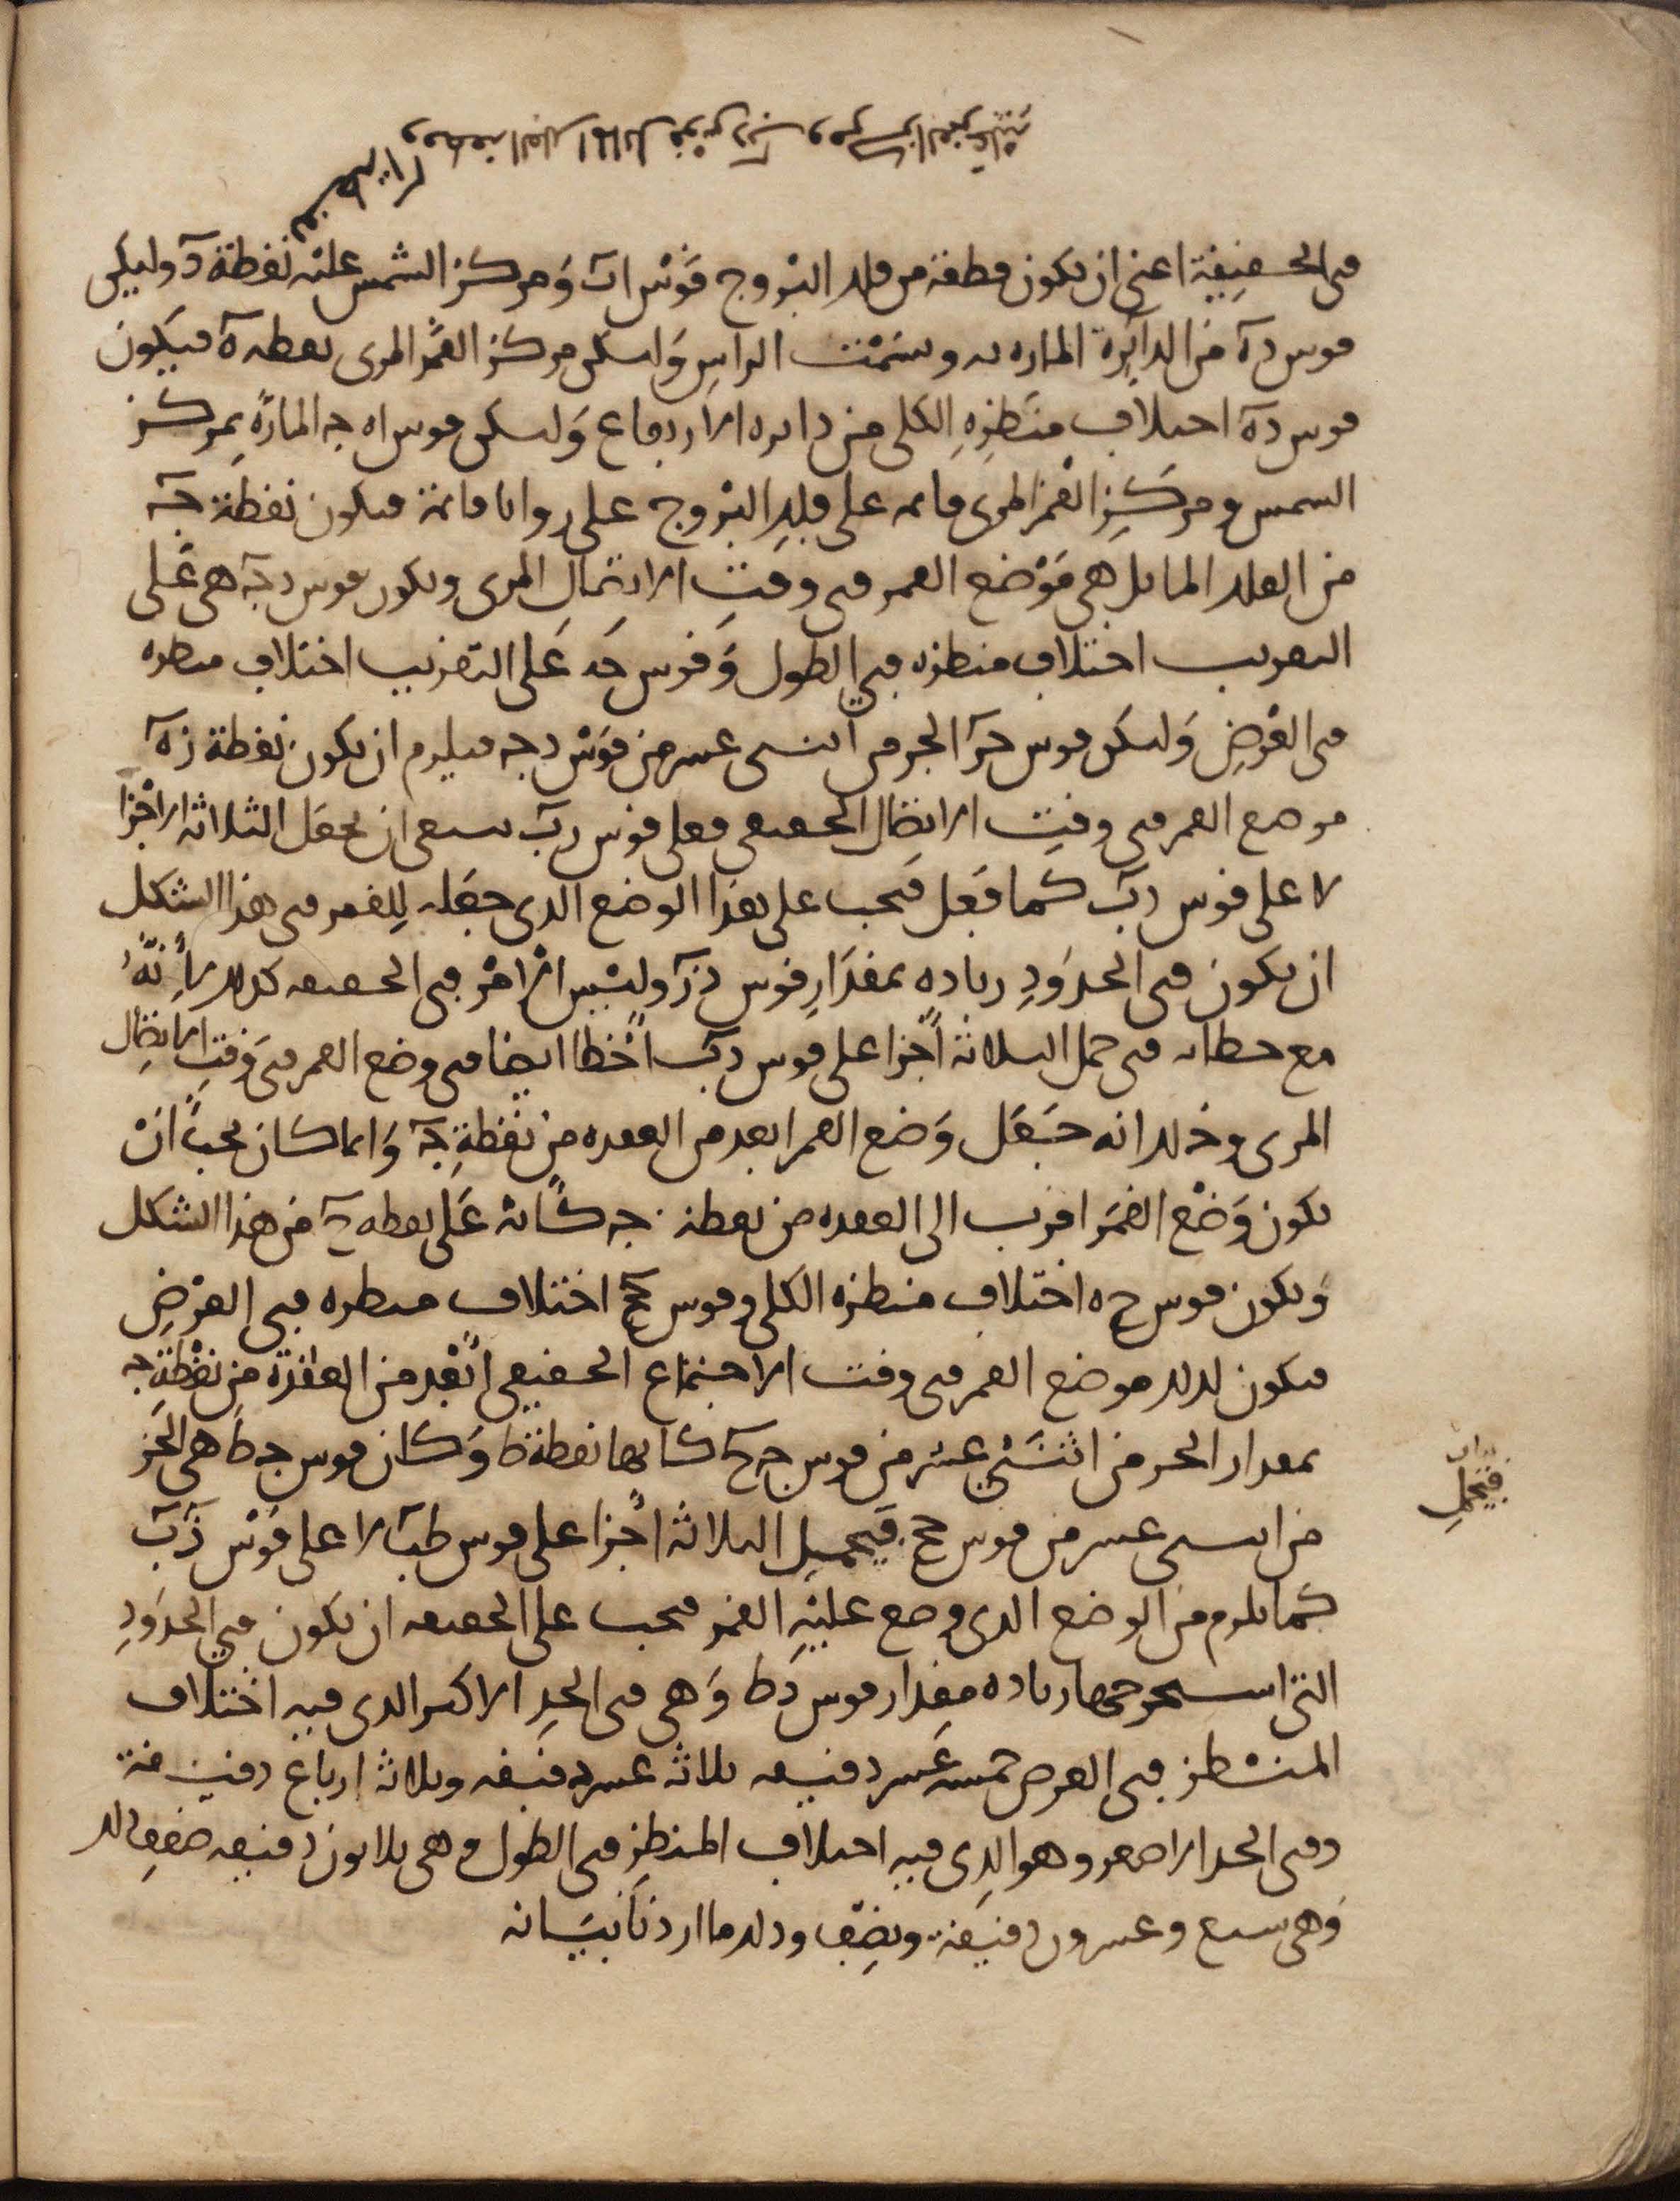 في الحقيقية اعني ان تكون قطعة من فلك البروج قوس اب ومركز الشمس عليه نقطة د وليكن
قوس ده من الدائرة المارة به وسمت الراس وليكن مركز القمر المرى نقطة ه فيكون
قوس ده اختلاف منظره الكلى من دائرة الارتفاع وليكن قوس اه جه المارة بمركز
الشمس ومركز القمر المرى قائمة على فلك البروج على زوايا قائمة فتكون نقطة جه
من الفلك المائل هي موضع القمر في وقت الاتصال المرى وتكون قوس د جه هي على
التقريب اختلاف منظره في الطول وقوس جه على التقريب اختلاف منظره
في العرض وليكن قوس الجز من اثنى عشر من قوس د جه فيلزم ان تكون نقطة ز
موضع القمر في وقت الاتصال الحقيقى فعلى قوس زب ينبغي ان تجعل الثلاثة الاجزا
لا على قوس دب كما فعل فيجب على هذا الوضع الذي جعله للقمر في هذا الشكل
ان يكون في الحدود زيادة بمقدار قوس دز وليس الامر في الحقيقة كذلك لانه
مع خطائه في حمل الثلاثة اجزا على قوس دب اخطا ايضا في وضع القمر في وقت الاتصال
المرى وذلك انه جعل وضع القمر ابعد من العقدة من نقطة جه وانما كان يجب ان
يكون وضع القمر اقرب الى العقدة من نقطة جه كانه على نقطة ح من هذا الشكل
وتكون قوس ح ه اختلاف منظره الكلى وقوس اختلاف منظره في العرض
فيكون لذلك موضع القمر في وقت الاجتماع الحقيقي ابعد من العقدة من نقطة جه
بمقدار الجز من اثنى عشر من قوس جه ح كانها نقطة ط وكان قوس جه ط هي الجز
من اثنى عشر من قوس فيحمل الثلاثة اجزا على قوس طب لا على قوس زب
كما يلزم من الوضع الذي وضع عليه القمر فيجب على الحقيقة ان يكون في الحدود
التي استخرجها زيادة مقدار قوس دط وهي في الحد الاكبر الذي فيه اختلاف
المنظر في العرض خمسة عشر دقيقة ثلاثة عشرة دقيقة وثلاثة ارباع دقيقة
وفي الحد الاصغر وهو الذي فيه اختلاف المنظر في الطول وهي ثلاثون دقيقة ضعف ذلك
وهي سبع وعشرون دقيقة ونصف وذلك ما اردنا بيانه
فيحمل